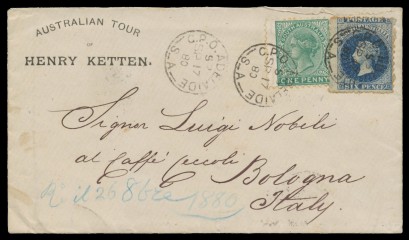 AUSTRALIAN TOUR
OF
HENRY KETTEN.
G.P.O. ADELAIDE
S.A.
SP 17
80
G.P.O. ADELAIDE
S.A.
SP 17
80
ONE PENNY
SIX PENCE
Signor Luigi Nobili
al Caffè
Bologna
Italy.
il 26 8bre 1880